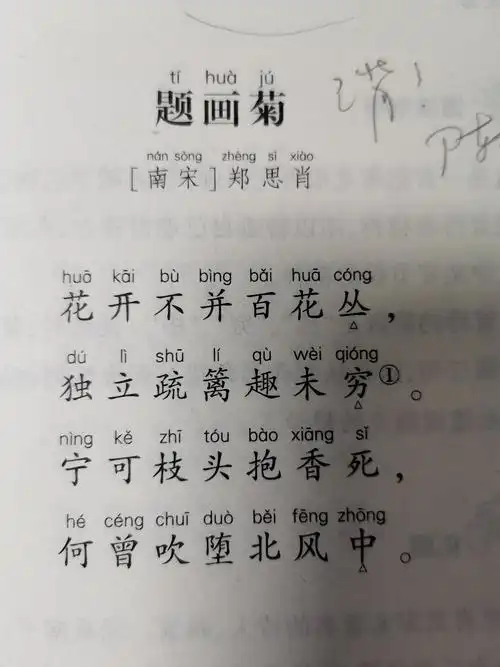 tí huà jú
题画菊
nán sòng zhèng sì xiào
[南宋]郑思肖
huā kāi bù bìng bǎi huā cóng
花开不并百花丛，
dú lì shū lí qù wèi qióng
独立疏篱趣未穷①。
nìng kě zhī tóu bào xiāng sǐ
宁可枝头抱香死，
hé céng chuī duò běi fēng zhōng
何曾吹堕北风中。